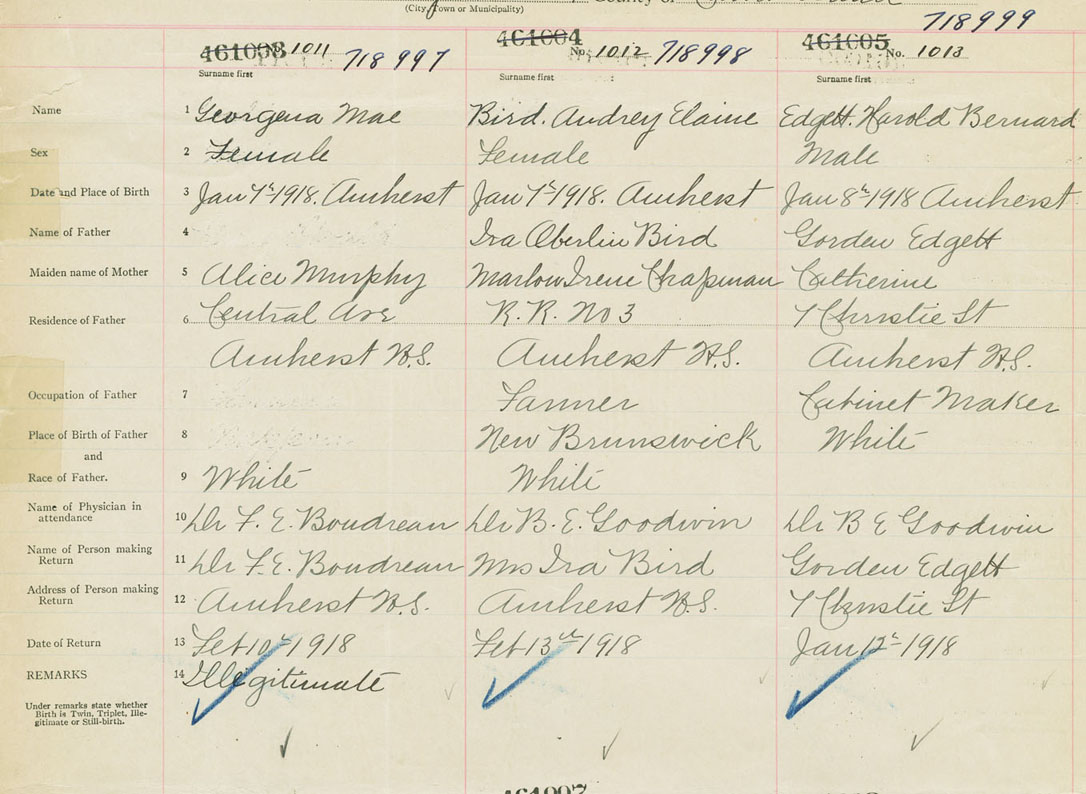 (City, Town or Municipality) County of
718999
461003 1011 718997
461004 No. 1012 718998
461005 No. 1013
Surname first Surname first Surname first
Name 1 Georgena Mae Bird. Audrey Elaine Edgett. Harold Bernard
Sex 2 Female Female Male
Date and Place of Birth 3 Jan 7th 1918. Amherst Jan 7th 1918. Amherst Jan 8th 1918 Amherst
Name of Father 4 Ira Oberlin Bird Gorden Edgett
Maiden name of Mother 5 Alice Murphy Marlow Irene Chapman Catherine
Residence of Father 6 Central Ave R. R. No 3 7 Christie St
Amherst N.S. Amherst N.S. Amherst N.S.
Occupation of Father 7 Farmer Cabinet Maker
Place of Birth of Father 8 New Brunswick White
and
Race of Father. 9 White White
Name of Physician in
attendance 10 Dr F. E. Boudreau Dr B. E. Goodwin Dr B E Goodwin
Name of Person making
Return 11 Dr F. E. Boudreau Mrs Ira Bird Gorden Edgett
Address of Person making
Return 12 Amherst N.S. Amherst N.S. 7 Christie St
Date of Return 13 Feb 10th 1918 Feb 13th 1918 Jan 12th 1918
REMARKS 14 Illegitimate
Under remarks state whether
Birth is Twin, Triplet, Ille-
gitimate or Still-birth.
461007